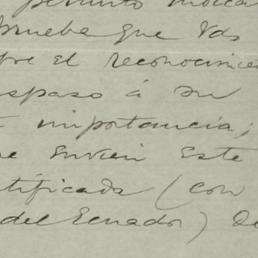 permito indica
prueba que Vds
bre el reconocimie
aspaso á su
importancia;
ue envien este
tificada (con
del Ecuador) De